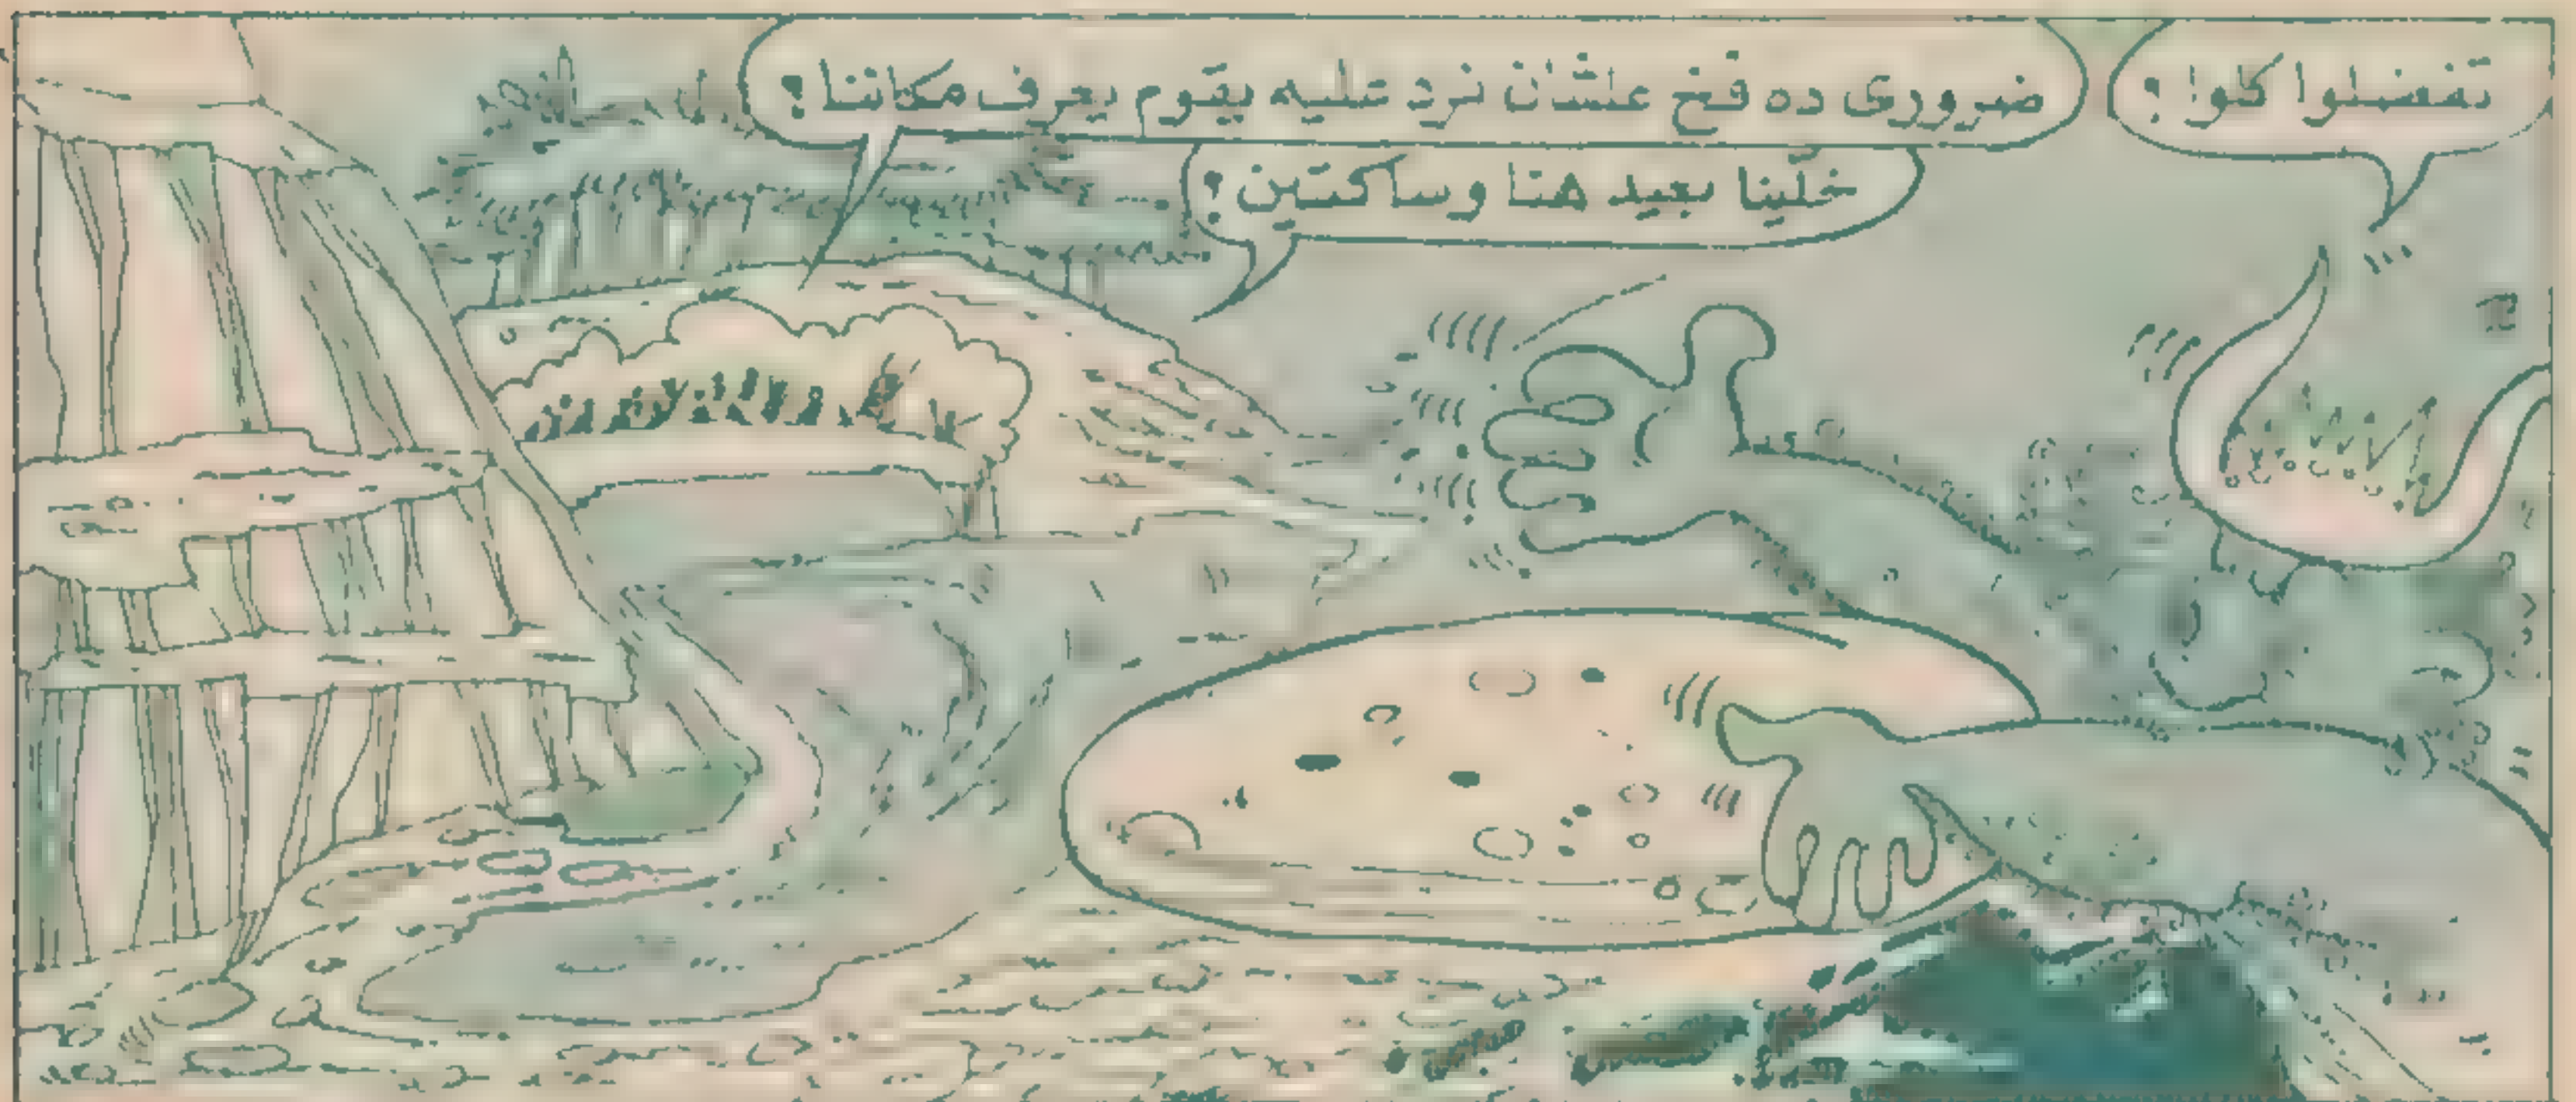 تفضلوا كلوا ؟
ضرورى ده فخ علشان نرد عليه يقوم يعرف مكاننا ؟
خلّينا بعيد هنا وساكتين ؟